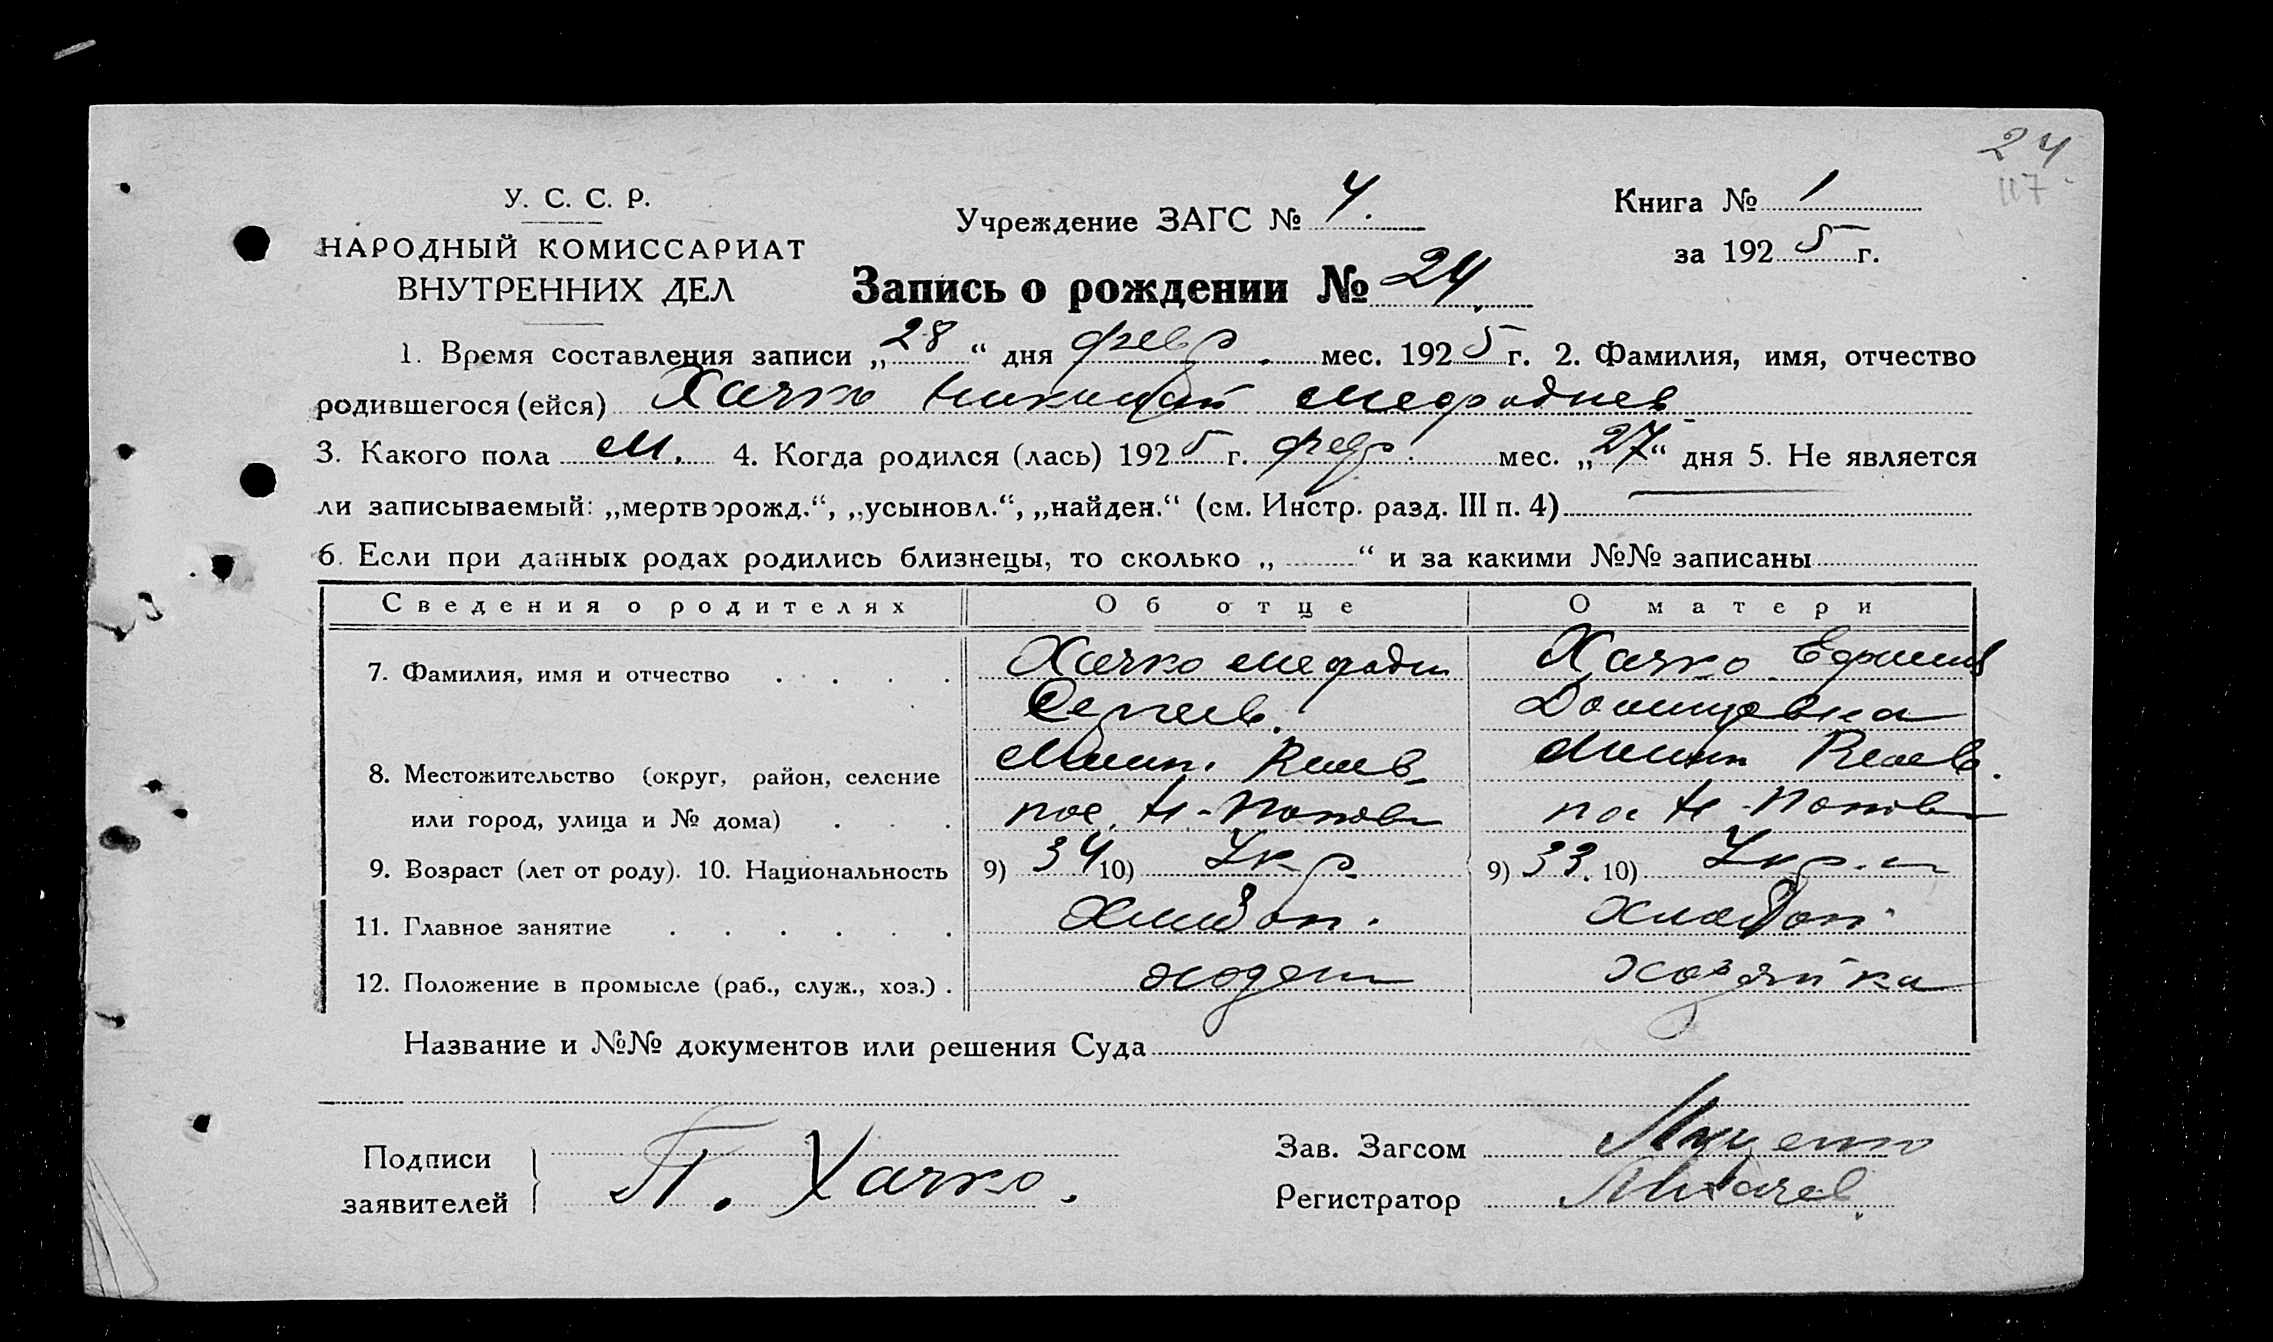 24
117
У. С. С. Р.
НАРОДНЫЙ КОМИССАРИАТ
ВНУТРЕННИХ ДЕЛ
Учреждение ЗАГС № 4.
Книга № 1
за 1925 г.
Запись о рождении № 24
1. Время составления записи „28“ дня февр. мес. 1925 г. 2. Фамилия, имя, отчество
родившегося (ейся) Хачко
3. Какого пола М. 4. Когда родился (лась) 1925 г. февр. мес. „27“ дня 5. Не является
ли записываемый: „мертворожд.“, „усыновл.“, „найден.“ (см. Инстр. разд. III п. 4)
6. Если при данных родах родились близнецы, то сколько „ “ и за какими №№ записаны
Сведения о родителях Об отце О матери
7. Фамилия, имя и отчество Хачко Хачко
8. Местожительство (округ, район, селение
или город, улица и № дома) пос. Н-
9. Возраст (лет от роду). 10. Национальность 9) 34 10) Укр. 9) 33. 10) Укр.
11. Главное занятие Хлебоп. Хлебоп.
12. Положение в промысле (раб., служ., хоз.) хозяин хозяйка
Название и №№ документов или решения Суда
Подписи
заявителей П. Хачко.
Зав. Загсом
Регистратор